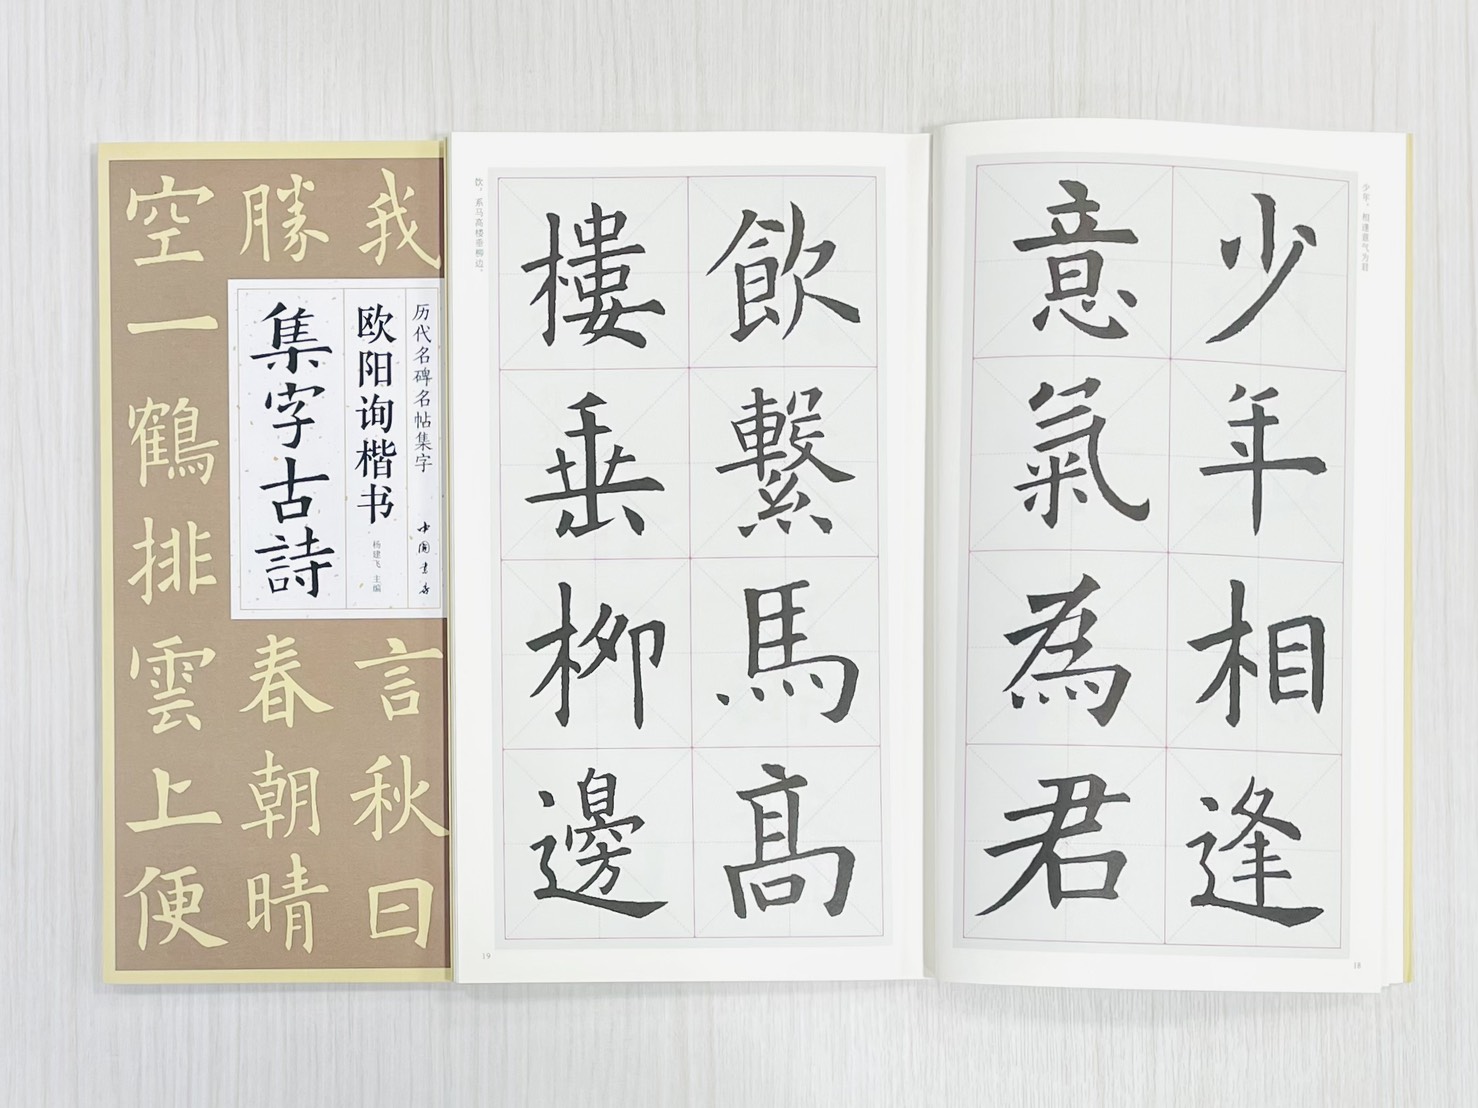 我言秋日
勝春朝晴
空一鶴排雲上便
历代名碑名帖集字
欧阳询楷书
集字古詩
杨建飞 主编
中国书店
少年，相逢意气为君
少年相逢
意氣為君
18
飲繫馬高
樓垂柳邊
饮，系马高楼垂柳边。
19